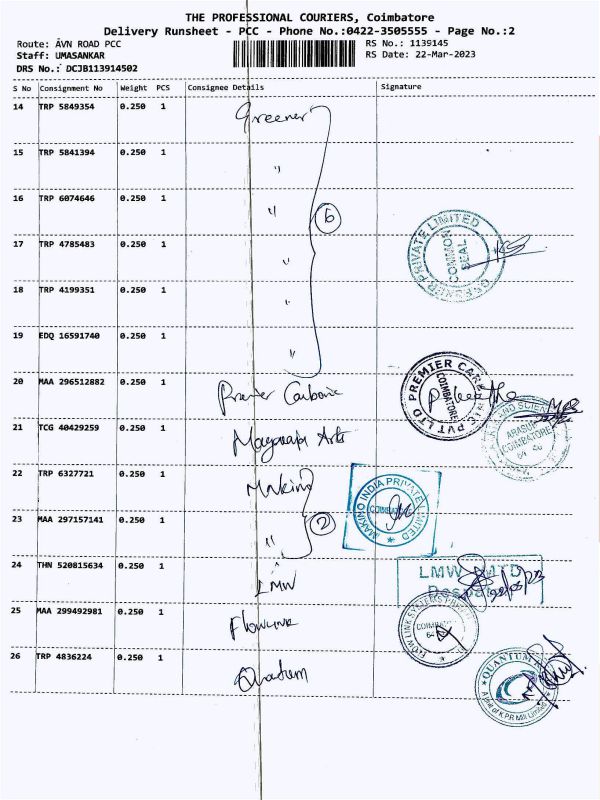 THE PROFESSIONAL COURIERS, Coimbatore
Delivery Runsheet - PCC - Phone No.:0422-3505555 - Page No.:2
Route: AVN ROAD PCC
RS No.: 1139145
Staff: UMASANKAR
RS Date: 22-Mar-2023
DRS No.: DCJB113914502
S No Consignment No Weight PCS Consignee Details Signature
14 TRP 5849354 0.250 1 Greener
15 TRP 5841394 0.250 1 "
16 TRP 6074646 0.250 1 " 6
17 TRP 4785483 0.250 1 "
PRIVATE LIMITED
COMMON SEAL
18 TRP 4199351 0.250 1 "
19 EDQ 16591740 0.250 1 "
20 MAA 296512882 0.250 1 Premier Carbonic
PREMIER CARB
COIMBATORE
PVT LTD
21 TCG 40429259 0.250 1
ARASUR
COIMBATORE
22 TRP 6327721 0.250 1 Makino
MAKINO INDIA PRIVATE LIMITED
23 MAA 297157141 0.250 1 " 2
24 THN 520815634 0.250 1 LMW
LMW
25 MAA 299492981 0.250 1 Flowlink
26 TRP 4836224 0.250 1 Quantum
QUANTUM
A unit of K.P.R Mill Limited